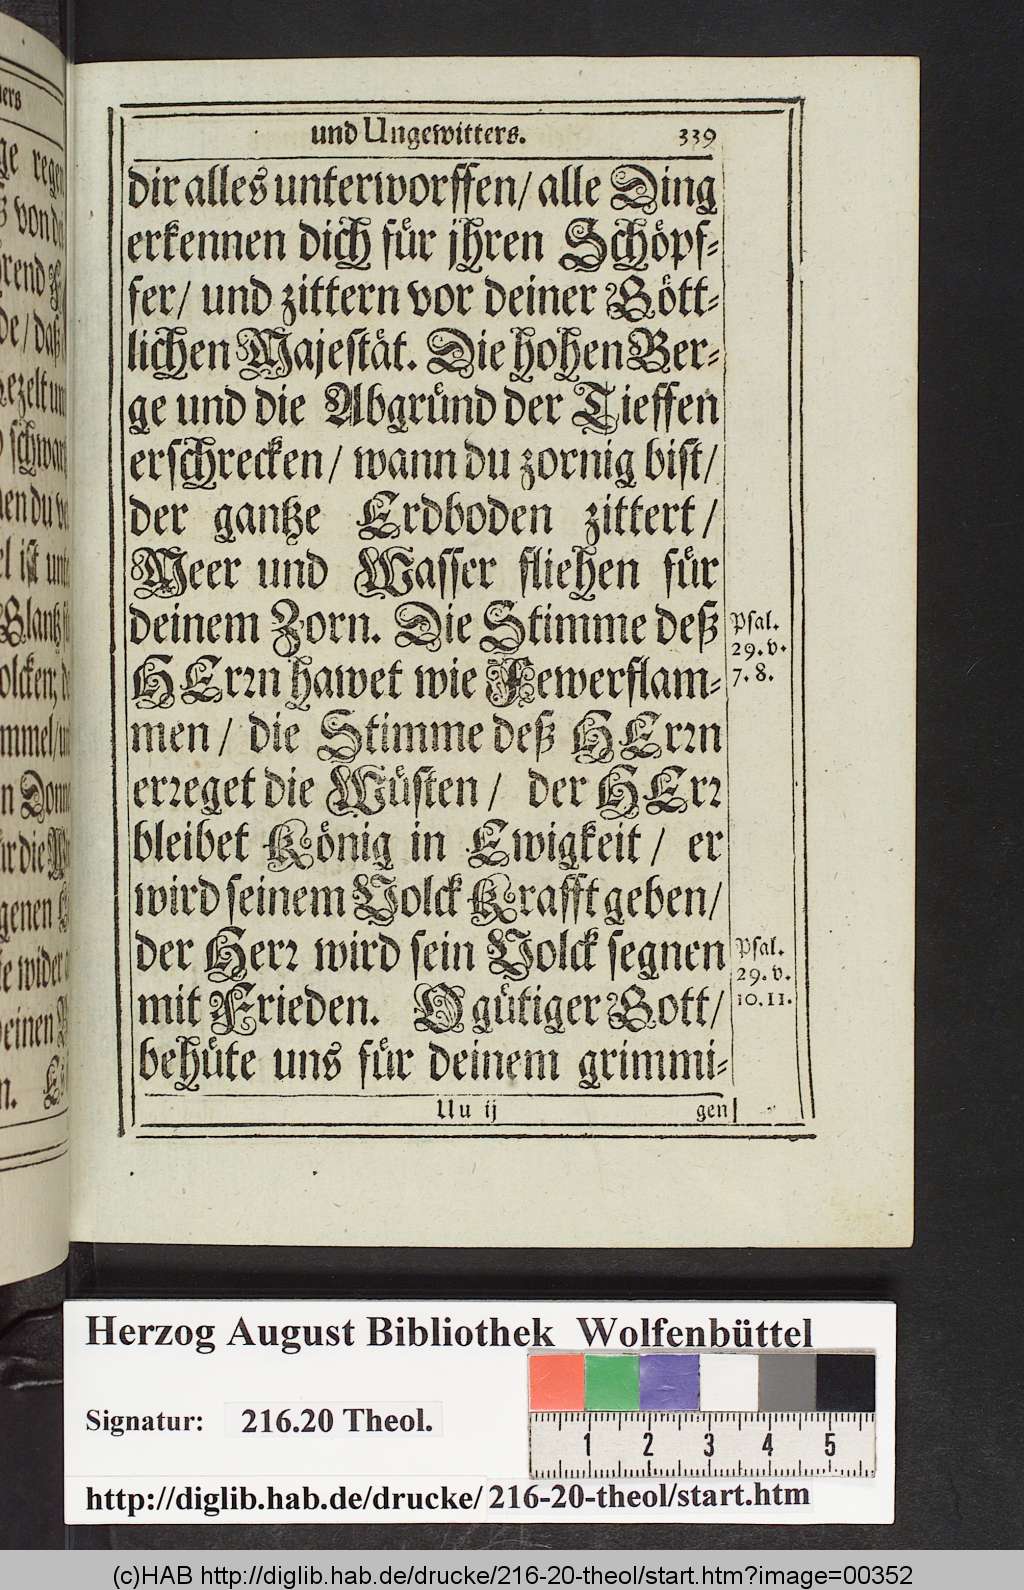 und Ungewitters. 339
dir alles unterworffen/ alle Ding
erkennen dich für jhren Schöpf-
fer/ und zittern vor deiner Gött-
lichen Majestät. Die hohen Ber-
ge und die Abgründ der Tieffen
erschrecken/ wann du zornig bist/
der gantze Erdboden zittert/
Meer und Wasser fliehen für
deinem Zorn. Die Stimme deß
HErrn hawet wie Fewerflam-
men/ die Stimme deß HErrn
erreget die Wüsten/ der HErr
bleibet König in Ewigkeit/ er
wird seinem Volck Krafft geben/
der Herr wird sein Volck segnen
mit Frieden. O gütiger Gott/
behüte uns für deinem grimmi-
Uu ij gen
Psal.
29. v.
7. 8.
Psal.
29. v.
10. 11.
Herzog August Bibliothek Wolfenbüttel
Signatur: 216.20 Theol.
1 2 3 4 5
http://diglib.hab.de/drucke/216-20-theol/start.htm
(c)HAB http://diglib.hab.de/drucke/216-20-theol/start.htm?image=00352